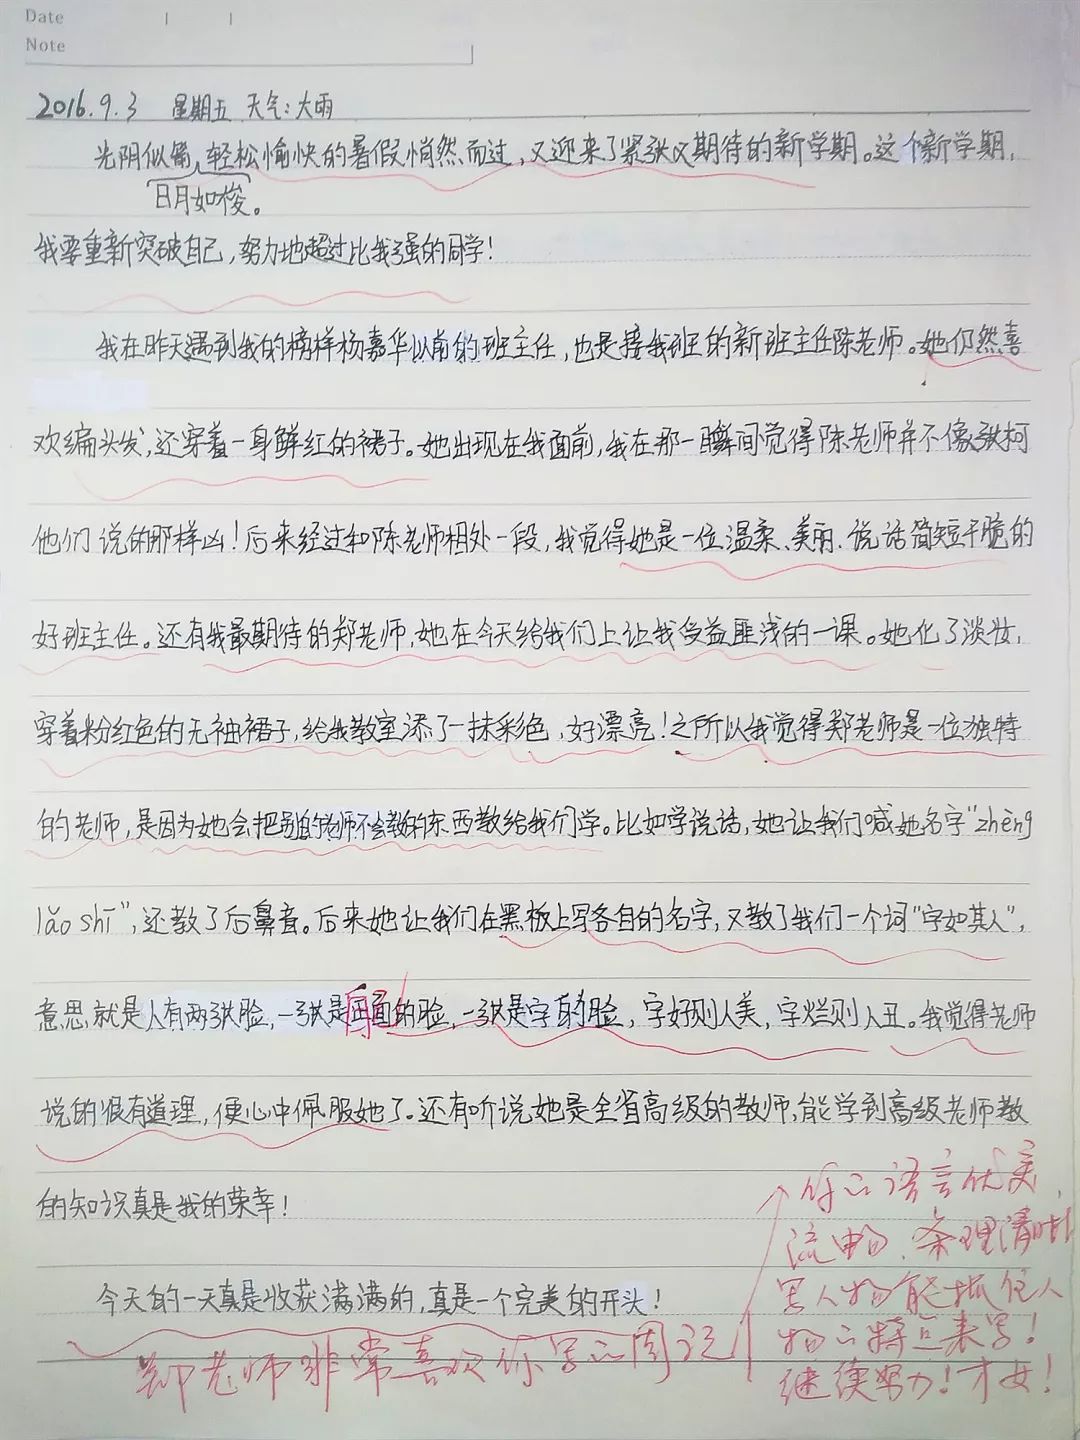 Date
Note
2016.9.3 星期五 天气:大雨
光阴似箭,轻松愉快的暑假悄然而过,又迎来了紧张又期待的新学期。这个新学期,
日月如梭。
我要重新突破自己,努力地超过比我强的同学!
我在昨天遇到我的榜样杨嘉华以前的班主任,也是接我班的新班主任陈老师。她仍然喜
欢编头发,还穿着一身鲜红的裙子。她出现在我面前,我在那一瞬间觉得陈老师并不像张柯
他们说的那样凶!后来经过和陈老师相处一段,我觉得她是一位温柔、美丽、说话简短干脆的
好班主任。还有我最期待的郑老师,她在今天给我们上让我受益匪浅的一课。她化了淡妆,
穿着粉红色的无袖裙子,给我教室添了一抹彩色,好漂亮!之所以我觉得郑老师是一位独特
的老师,是因为她会把别的老师不会教的东西教给我们学。比如学说话,她让我们喊她名字"zhèng
lǎo shī",还教了后鼻音。后来她让我们在黑板上写各自的名字,又教了我们一个词"字如其人",
意思就是人有两张脸,一张是的脸,一张是字的脸,字好则人美,字烂则人丑。我觉得老师
说的很有道理,便心中佩服她了。还有听说她是全省高级的教师,能学到高级老师教
的知识真是我的荣幸!
今天的一天真是收获满满的,真是一个完美的开头!
郑老师非常喜欢你写的周记
你的语言优美,
流畅、条理清晰
写人物能抓住人
物的特点来写!
继续努力!才女!